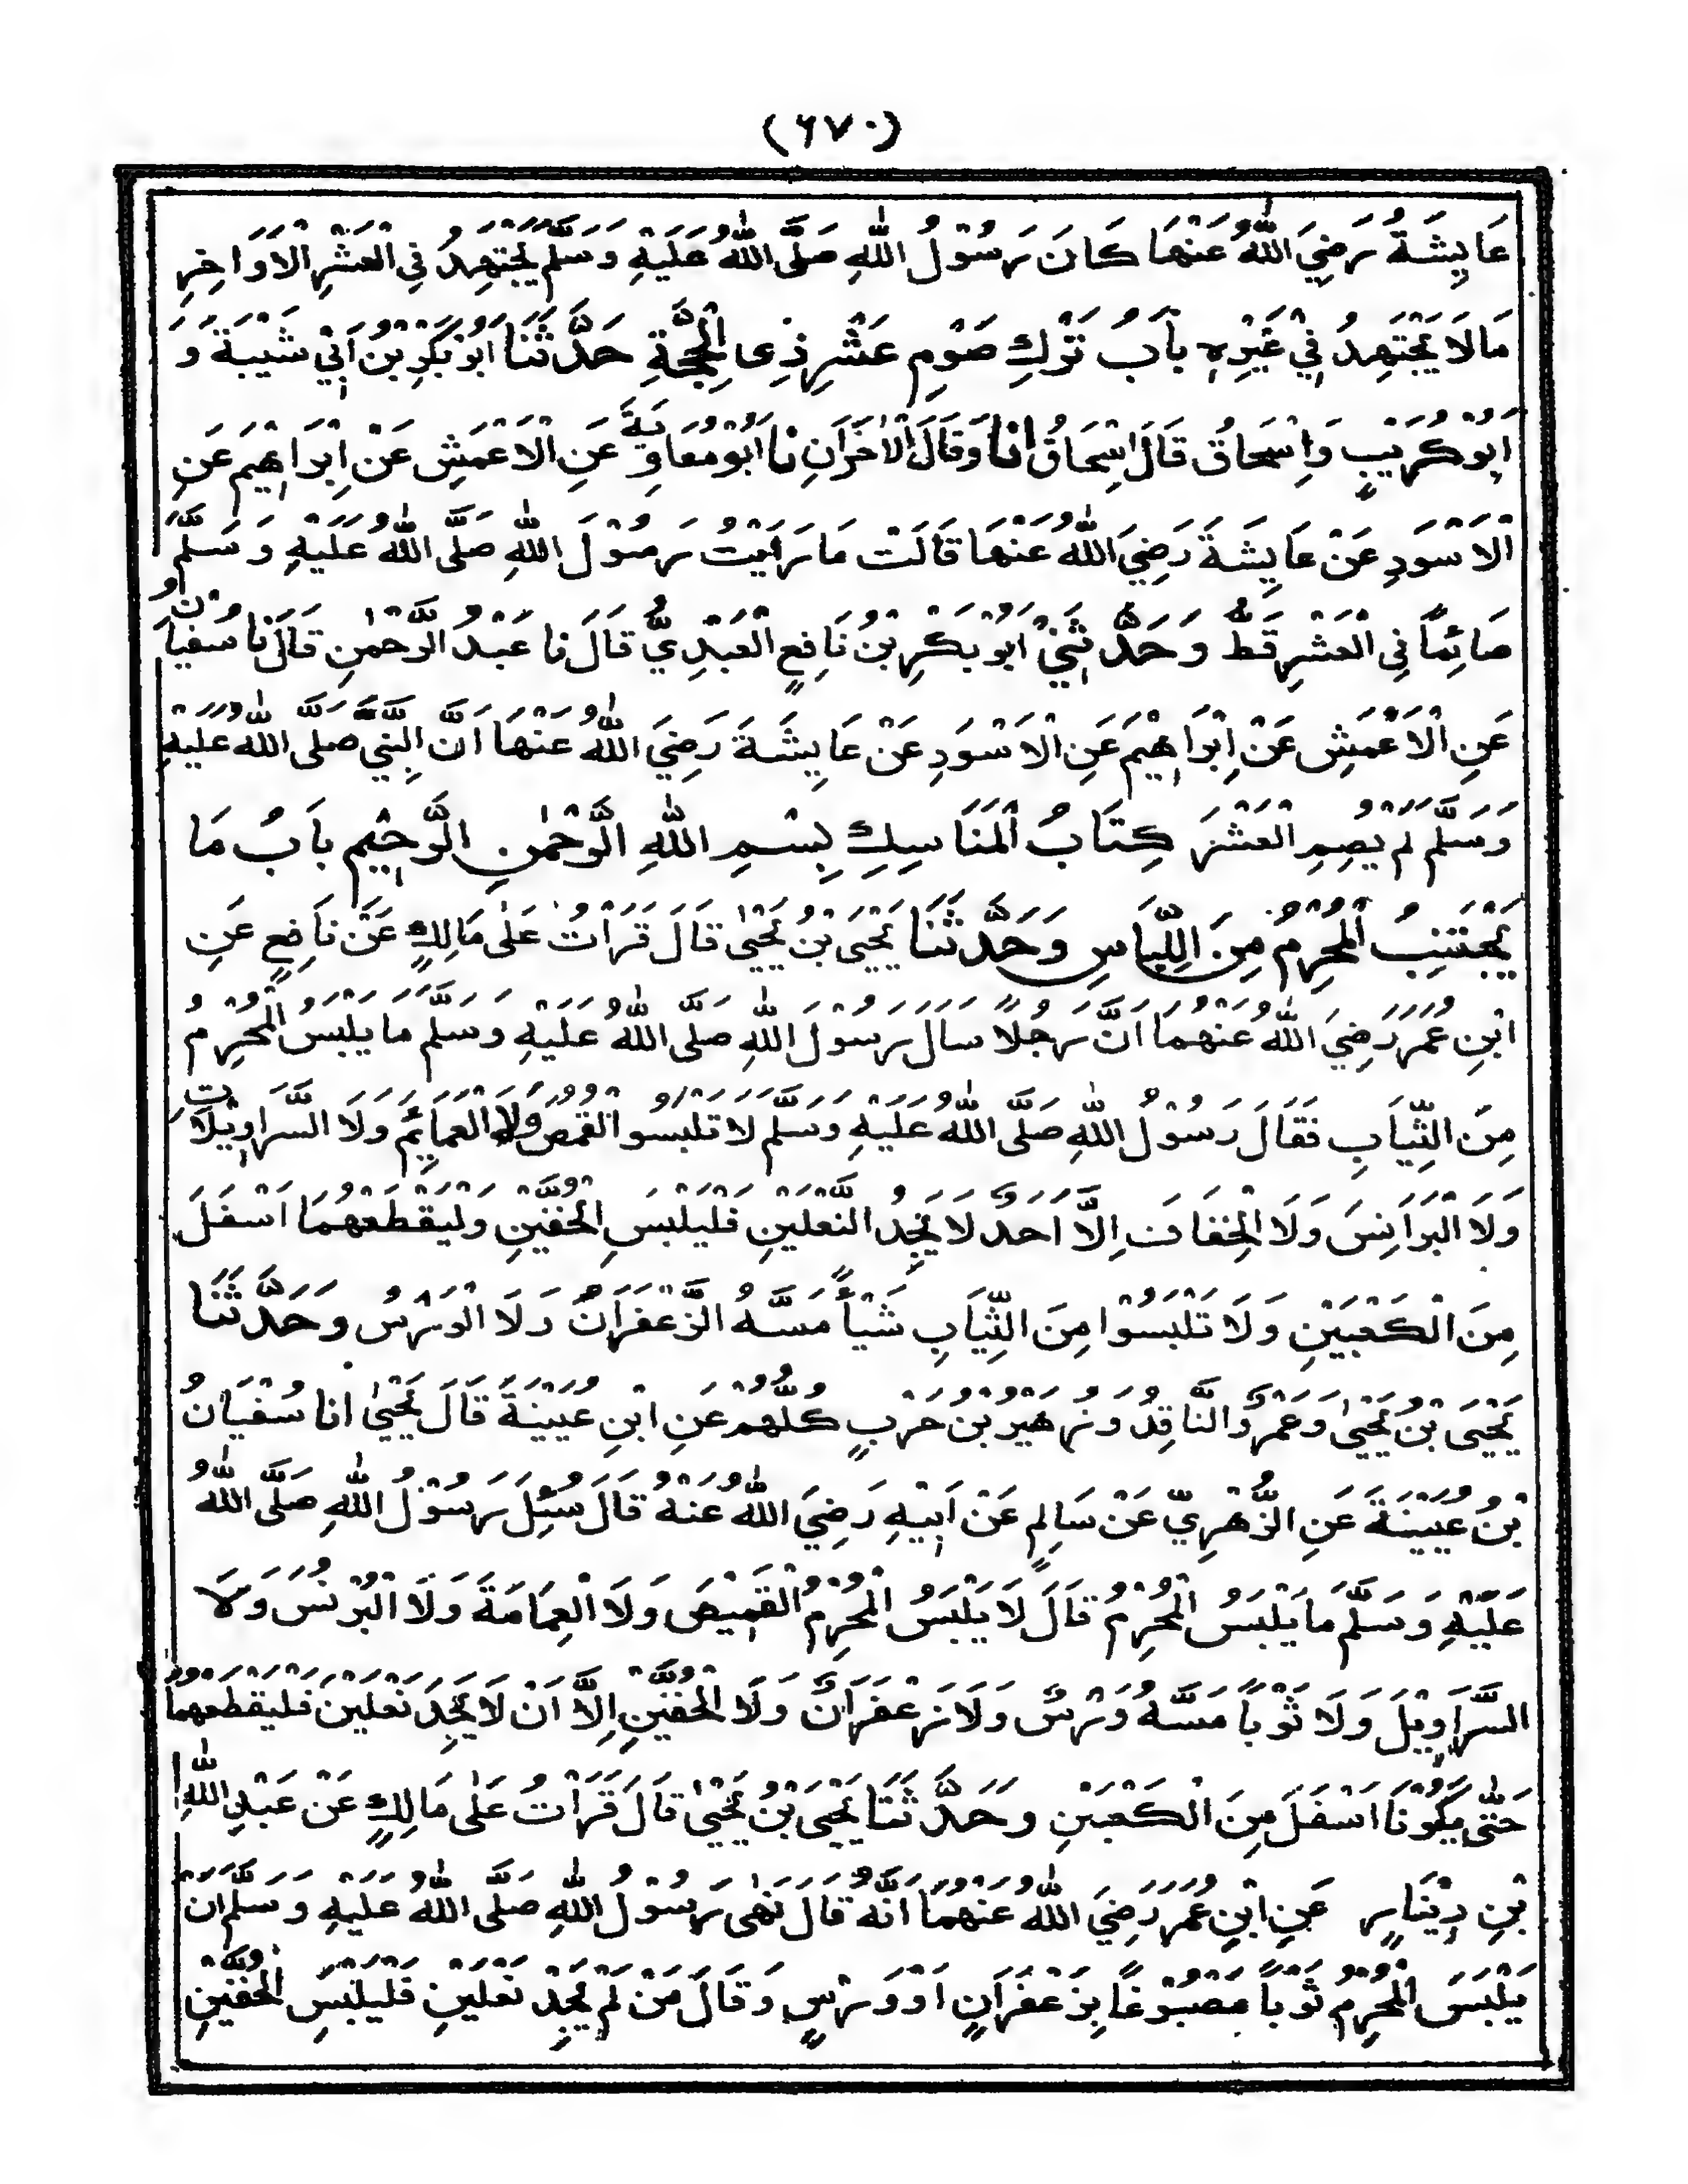 (٦٧٠)
عَايِشَةُ رَضِيَ اللّٰهُ عَنْهَا كَانَ رَسُوْلُ اللّٰهِ صَلَّى اللّٰهُ عَلَيْهِ وَسَلَّمَ يَجْتَهِدُ فِى الْعَشْرِ الْاَوَاخِرِ
مَالَا يَجْتَهِدُ فِيْ غَيْرِهٖ بَابُ تَرْكِ صَوْمِ عَشْرِ ذِى الْحِجَّةِ حَدَّثَنَا اَبُوْ بَكْرِ بْنُ اَبِيْ شَيْبَةَ وَ
اَبُوْ كُرَيْبٍ وَاِسْحَاقُ قَالَ اِسْحَاقُ اَنَا وَقَالَ الْاٰخَرَانِ نَا اَبُوْ مُعَاوِيَةَ عَنِ الْاَعْمَشِ عَنْ اِبْرَاهِيْمَ عَنِ
الْاَسْوَدِ عَنْ عَايِشَةَ رَضِيَ اللّٰهُ عَنْهَا قَالَتْ مَا رَاَيْتُ رَسُوْلَ اللّٰهِ صَلَّى اللّٰهُ عَلَيْهِ وَسَلَّمَ
صَائِمًا فِى الْعَشْرِ قَطُّ وَحَدَّثَنِيْ اَبُوْ بَكْرِ بْنُ نَافِعٍ الْعَبْدِيُّ قَالَ نَا عَبْدُ الرَّحْمٰنِ قَالَ نَا سُفْيَانُ
عَنِ الْاَعْمَشِ عَنْ اِبْرَاهِيْمَ عَنِ الْاَسْوَدِ عَنْ عَايِشَةَ رَضِيَ اللّٰهُ عَنْهَا اَنَّ النَّبِيَّ صَلَّى اللّٰهُ عَلَيْهِ
وَسَلَّمَ لَمْ يَصُمِ الْعَشْرَ كِتَابُ الْمَنَاسِكِ بِسْمِ اللّٰهِ الرَّحْمٰنِ الرَّحِيْمِ بَابُ مَا
يَجْتَنِبُ الْمُحْرِمُ مِنَ اللِّبَاسِ وَحَدَّثَنَا يَحْيَى بْنُ يَحْيٰى قَالَ قَرَاْتُ عَلٰى مَالِكٍ عَنْ نَافِعٍ عَنِ
ابْنِ عُمَرَ رَضِيَ اللّٰهُ عَنْهُمَا اَنَّ رَجُلًا سَاَلَ رَسُوْلَ اللّٰهِ صَلَّى اللّٰهُ عَلَيْهِ وَسَلَّمَ مَا يَلْبَسُ الْمُحْرِمُ
مِنَ الثِّيَابِ فَقَالَ رَسُوْلُ اللّٰهِ صَلَّى اللّٰهُ عَلَيْهِ وَسَلَّمَ لَا تَلْبَسُوا الْقُمُصَ وَلَا الْعَمَايِمَ وَلَا السَّرَاوِيْلَاتِ
وَلَا الْبَرَانِسَ وَلَا الْخِفَافَ اِلَّا اَحَدٌ لَا يَجِدُ النَّعْلَيْنِ فَلْيَلْبَسِ الْخُفَّيْنِ وَلْيَقْطَعْهُمَا اَسْفَلَ
مِنَ الْكَعْبَيْنِ وَلَا تَلْبَسُوْا مِنَ الثِّيَابِ شَيْأً مَسَّهُ الزَّعْفَرَانُ وَلَا الْوَرْسُ وَحَدَّثَنَا
يَحْيَى بْنُ يَحْيٰى وَعَمْرٌو النَّاقِدُ وَزُهَيْرُ بْنُ حَرْبٍ كُلُّهُمْ عَنِ ابْنِ عُيَيْنَةَ قَالَ يَحْيٰى اَنَا سُفْيَانُ
بْنُ عُيَيْنَةَ عَنِ الزُّهْرِيِّ عَنْ سَالِمٍ عَنْ اَبِيْهِ رَضِيَ اللّٰهُ عَنْهُ قَالَ سُئِلَ رَسُوْلُ اللّٰهِ صَلَّى اللّٰهُ
عَلَيْهِ وَسَلَّمَ مَا يَلْبَسُ الْمُحْرِمُ قَالَ لَا يَلْبَسُ الْمُحْرِمُ الْقَمِيْصَ وَلَا الْعِمَامَةَ وَلَا الْبُرْنُسَ وَلَا
السَّرَاوِيْلَ وَلَا ثَوْبًا مَسَّهُ وَرْسٌ وَلَا زَعْفَرَانٌ وَلَا الْخُفَّيْنِ اِلَّا اَنْ لَا يَجِدَ نَعْلَيْنِ فَلْيَقْطَعْهُمَا
حَتّٰى يَكُوْنَا اَسْفَلَ مِنَ الْكَعْبَيْنِ وَحَدَّثَنَا يَحْيَى بْنُ يَحْيٰى قَالَ قَرَاْتُ عَلٰى مَالِكٍ عَنْ عَبْدِ اللّٰهِ
بْنِ دِيْنَارٍ عَنِ ابْنِ عُمَرَ رَضِيَ اللّٰهُ عَنْهُمَا اَنَّهُ قَالَ نَهٰى رَسُوْلُ اللّٰهِ صَلَّى اللّٰهُ عَلَيْهِ وَسَلَّمَ اَنْ
يَلْبَسَ الْمُحْرِمُ ثَوْبًا مَصْبُوْغًا بِزَعْفَرَانٍ اَوْ وَرْسٍ وَقَالَ مَنْ لَمْ يَجِدْ نَعْلَيْنِ فَلْيَلْبَسِ الْخُفَّيْنِ